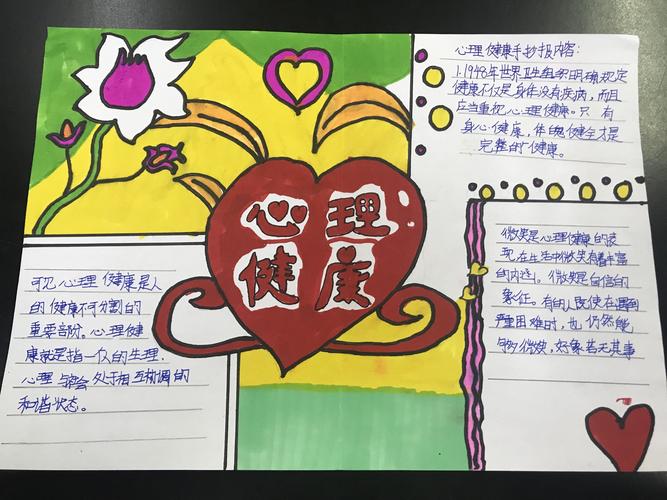 心理
健康
心理健康手抄报内容:
1.1948年世界卫生组织明确规定
健康不仅是身体没有疾病,而且
应当重视心理健康。只有
身心健康,体魄健全才是
完整的健康。
可见心理健康是人
的健康不可分割的
重要部份。心理健
康就是指一个人的生理、
心理与社会处于相互协调的
和谐状态。
微笑是心理健康的表
现在生活中微笑有着丰富
的内涵。微笑是自信的
象征。有的人既使在遇到
严重困难时,也仍然能
够微笑,好象若无其事